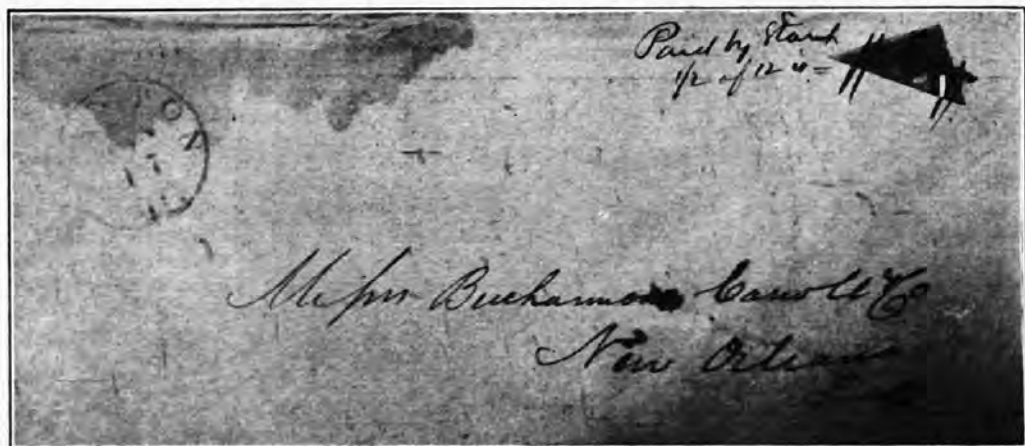 Paid by Stamp
1/2 of 12 c. =
ON
17
Messrs Buchannon Carroll & Co
New Orleans